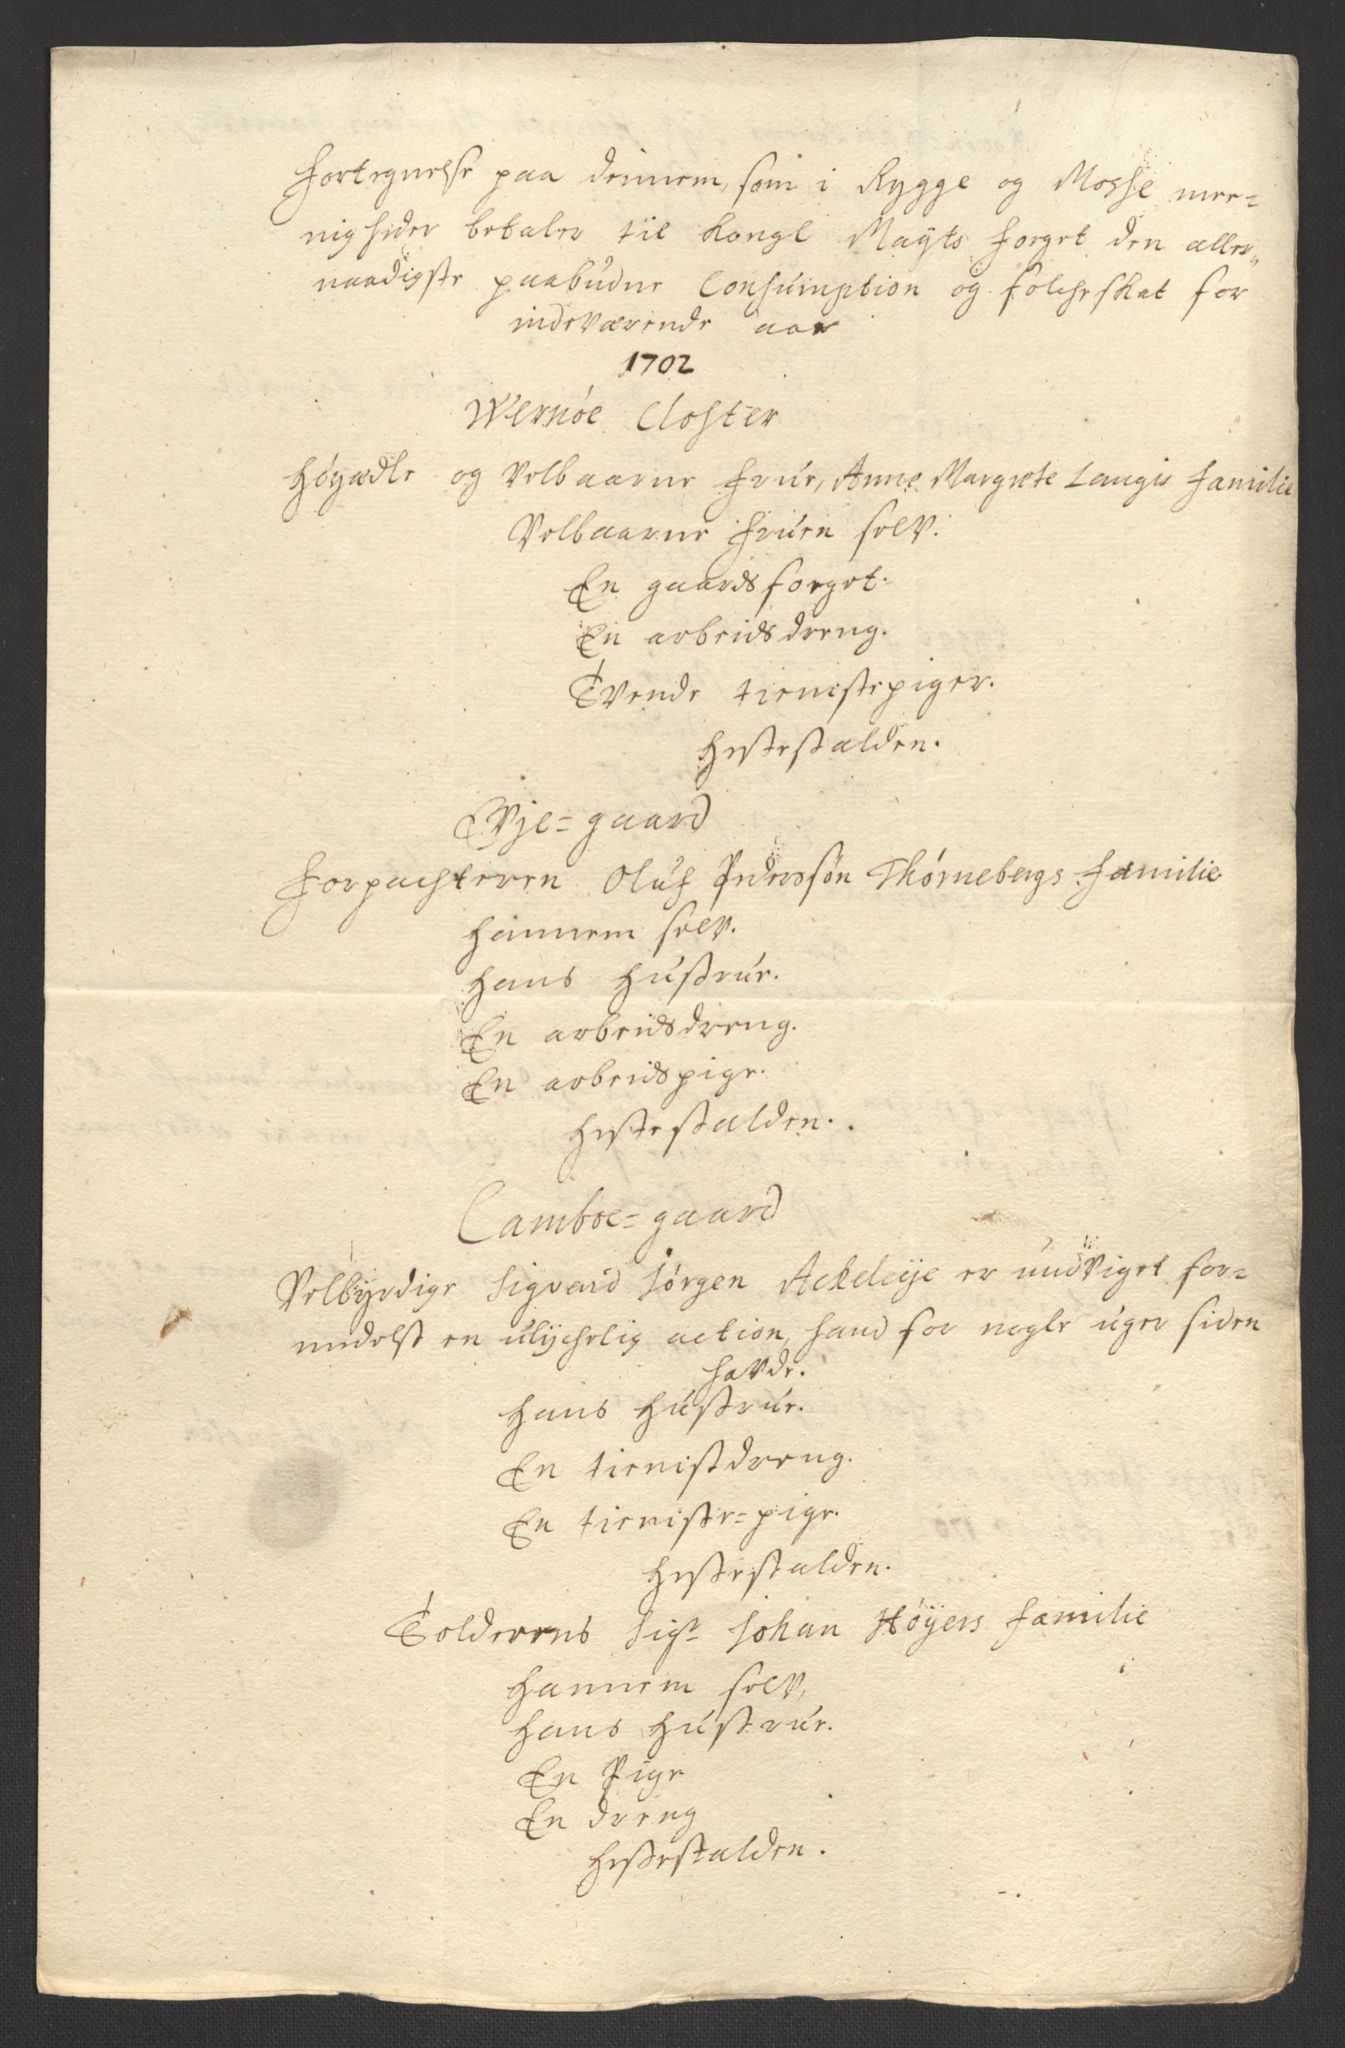 Fortegnelse paa dennem, som i Rygge og Mosse mee=
nigheder betaler til Kongl Mayts foget den aller„
naadigste paabudne Consumption og folcheskat for
indeværende aar
1702
Wernöe Closter
Höyædle og Velbaarne Frue, Anne Margrete Langis Familie
Velbaarne Fruen selv.
En gaardsfoeget.
En arbeidsdreng.
Tvende tienistepiger.
Hestestalden.
Evje=gaard
Forpachteren Oluf Pederssön Thörnebergs Familie
Hannem selv.
Hans Hustrue.
En arbeidsdreng.
En arbeidspige.
Hestestalden.
Camboe=gaard
Velbyrdige Sigvard Jörgen Ackeleije er undviget for=
midelst en ulychelig action, hand for nogle uger siden
hafde.
Hans Hustrue.
En tienistdreng.
En tieniste=pige.
Hestestalden.
Tolderens Sigr Johan Höÿers Familie
Hannem selv,
Hans Hustrue.
En Pige
En dreng
Hestestalden.